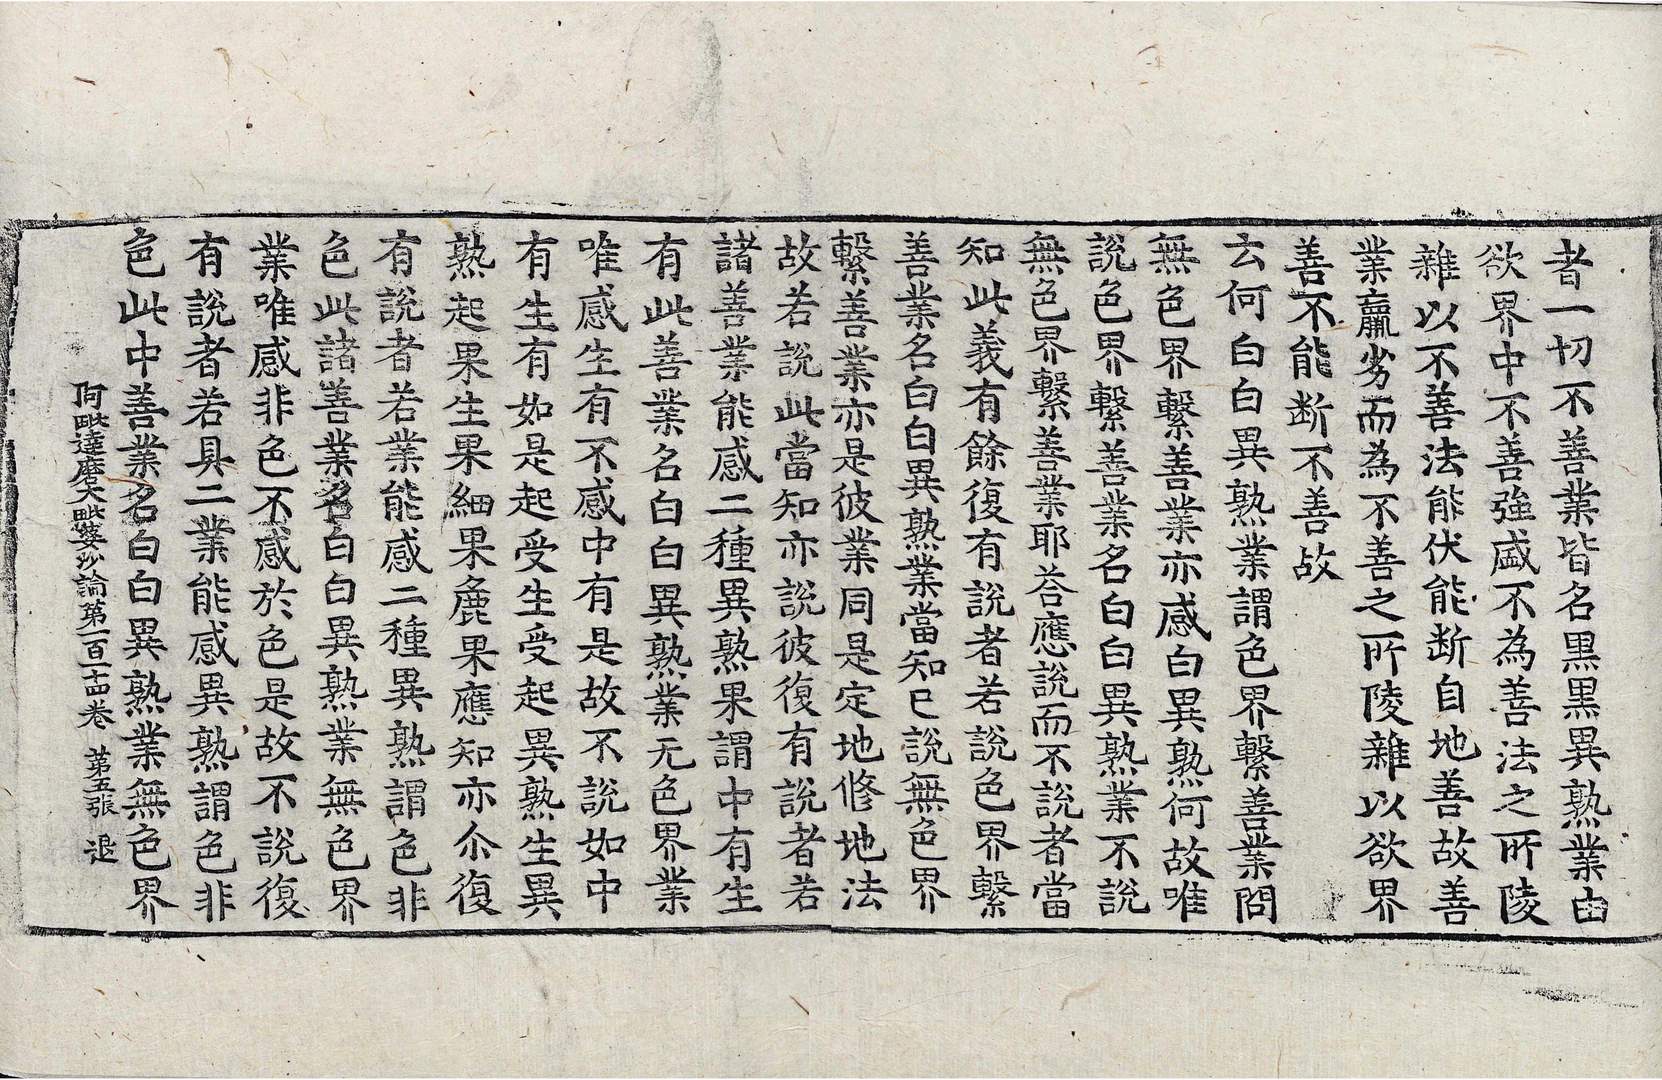 者一切不善業皆名黑黑異熟業由
欲界中不善強盛不為善法之所陵
雜以不善法能伏能断自地善故善
業羸劣而為不善之所陵雜以欲界
善不能断不善故
云何白白異熟業謂色界繫善業問
無色界繫善業亦感白異熟何故唯
說色界繫善業名白白異熟業不說
無色界繫善業耶荅應說而不說者當
知此義有餘復有說者若說色界繫
善業名白白異熟業當知已說無色界
繫善業亦是彼業同是定地修地法
故若說此當知亦說彼復有說者若
諸善業能感二種異熟果謂中有生
有此善業名白白異熟業无色界業
唯感生有不感中有是故不說如中
有生有如是起受生受起異熟生異
熟起果生果細果麁果應知亦尒復
有說者若業能感二種異熟謂色非
色此諸善業名白白異熟業無色界
業唯感非色不感於色是故不說復
有說者若具二業能感異熟謂色非
色此中善業名白白異熟業無色界
阿毗達磨大毗婆沙論第一百一十四卷 第五張 退